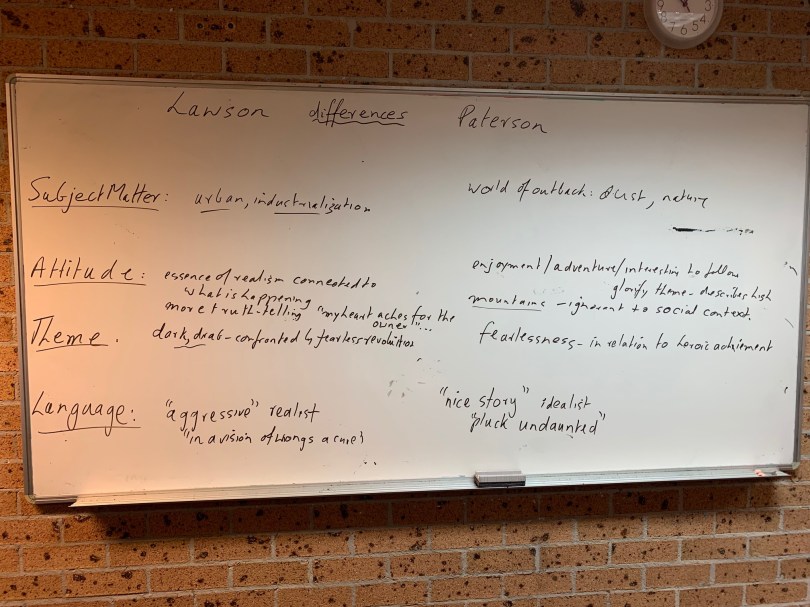 Lawson differences Paterson
Subject Matter: urban, industrialization
world of outback: dust, nature
Attitude: essence of realism connected to
what is happening
more truth-telling "my heart aches for the
owner"...
enjoyment/adventure/interesting to follow
glorify theme - describes high
mountains - ignorant to social context.
Theme. dark, drab - confronted by fearless revolution
fearlessness - in relation to heroic achiement
Language: "aggressive" realist
"in a vision of wrongs a
"nice story" idealist
"pluck undaunted"